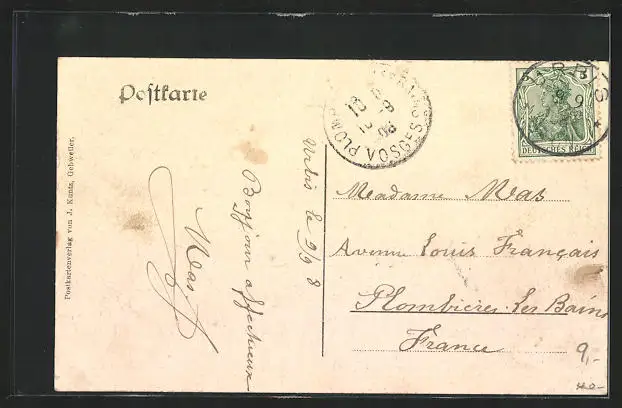 Postkarte
Postkartenverlag von J. Kuntz, Gebweiler.
Urbis le 9/9 8
Bonjour affectueux
Mas
PLOMBIÈRES
VOSGES
10
-9
08
URBIS
9 9
5
DEUTSCHES REICH
Madame Mas
Avenue Louis Français
Plombières-les Bains
France
9,-